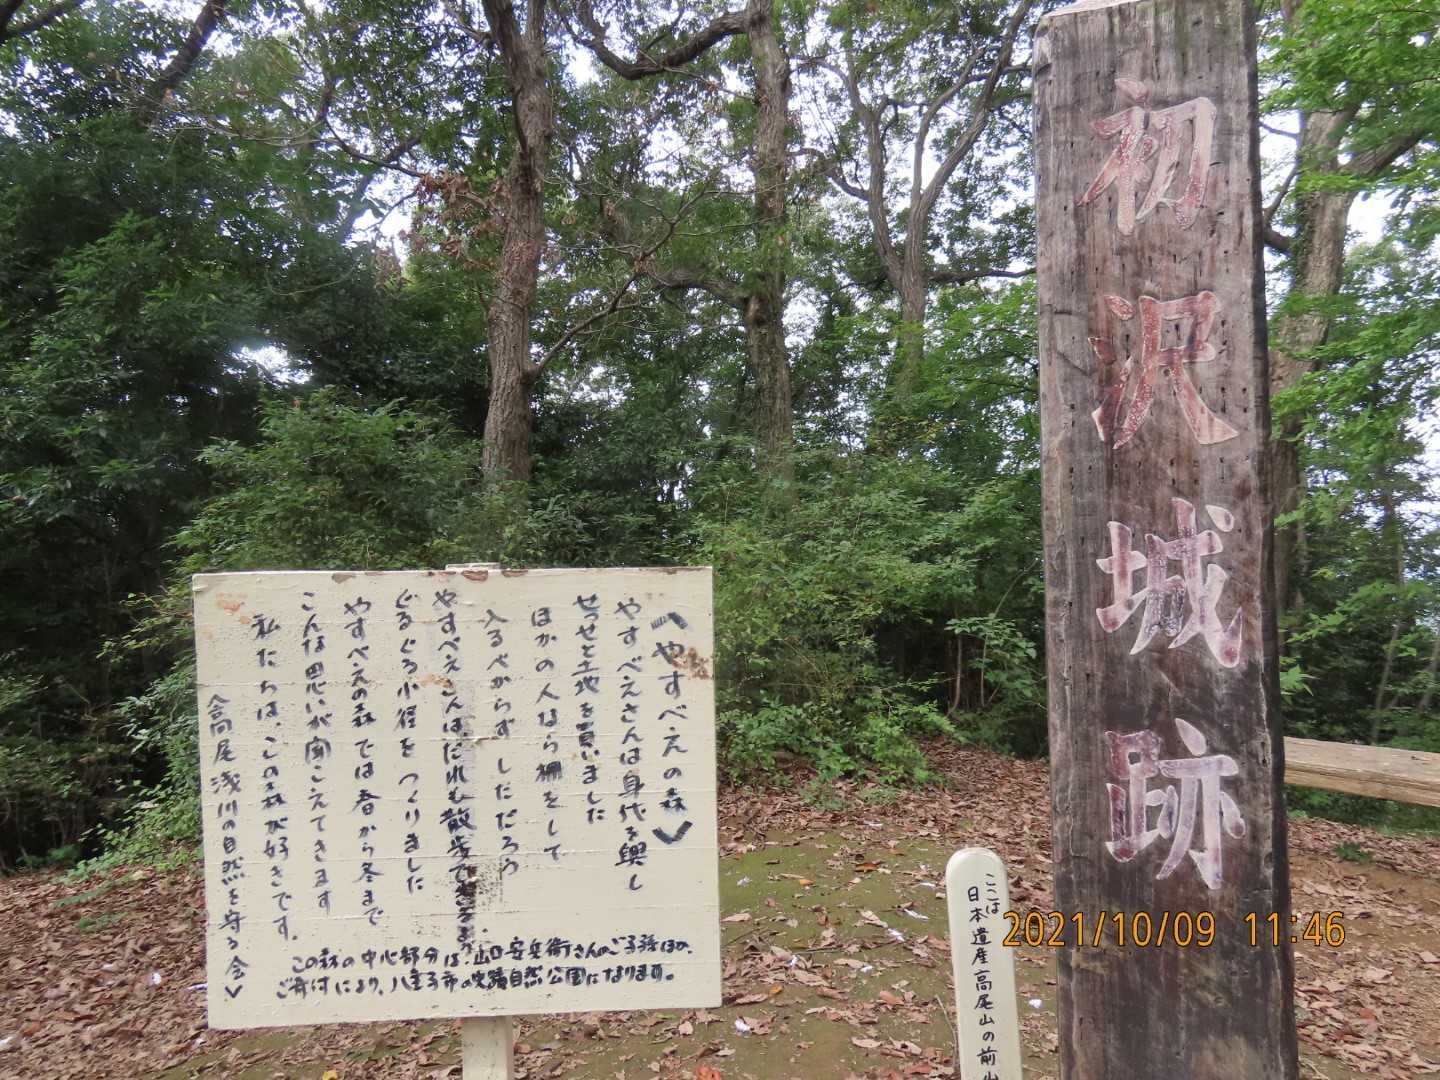 初沢城跡
〈やすべえの森〉
やすべえさんは身代を興し
せっせと土地を買いました
ほかの人なら柵をして
入るべからず しただろう
やすべえさんはだれも散歩できるよう
ぐるぐる小径を つくりました
やすべえの森では春から冬まで
こんな思いが聞こえてきます
私たちは、この森が好きです。
〈高尾浅川の自然を守る会〉
この森の中心部分は、山口安兵衛さんのご子孫ほか、
ご寄付により、八王子市の史蹟自然公園になります。
ここは
日本遺産高尾山の前山
2021/10/09 11:46